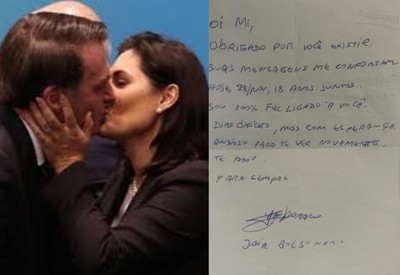 OI MI,
OBRIGADO POR VOCÊ EXISTIR.
SUAS MENSAGENS ME CONFORTAM
HOJE, 28/NOV, 18 ANOS JUNTOS.
SOU 100% FELIZ LIGADO A VOCÊ
DIAS DIFÍCEIS, MAS COM ESPERANÇA.
ANSIOSO PARA TE VER NOVAMENTE.
TE AMO
PARA SEMPRE
JAIR BOLSONARO